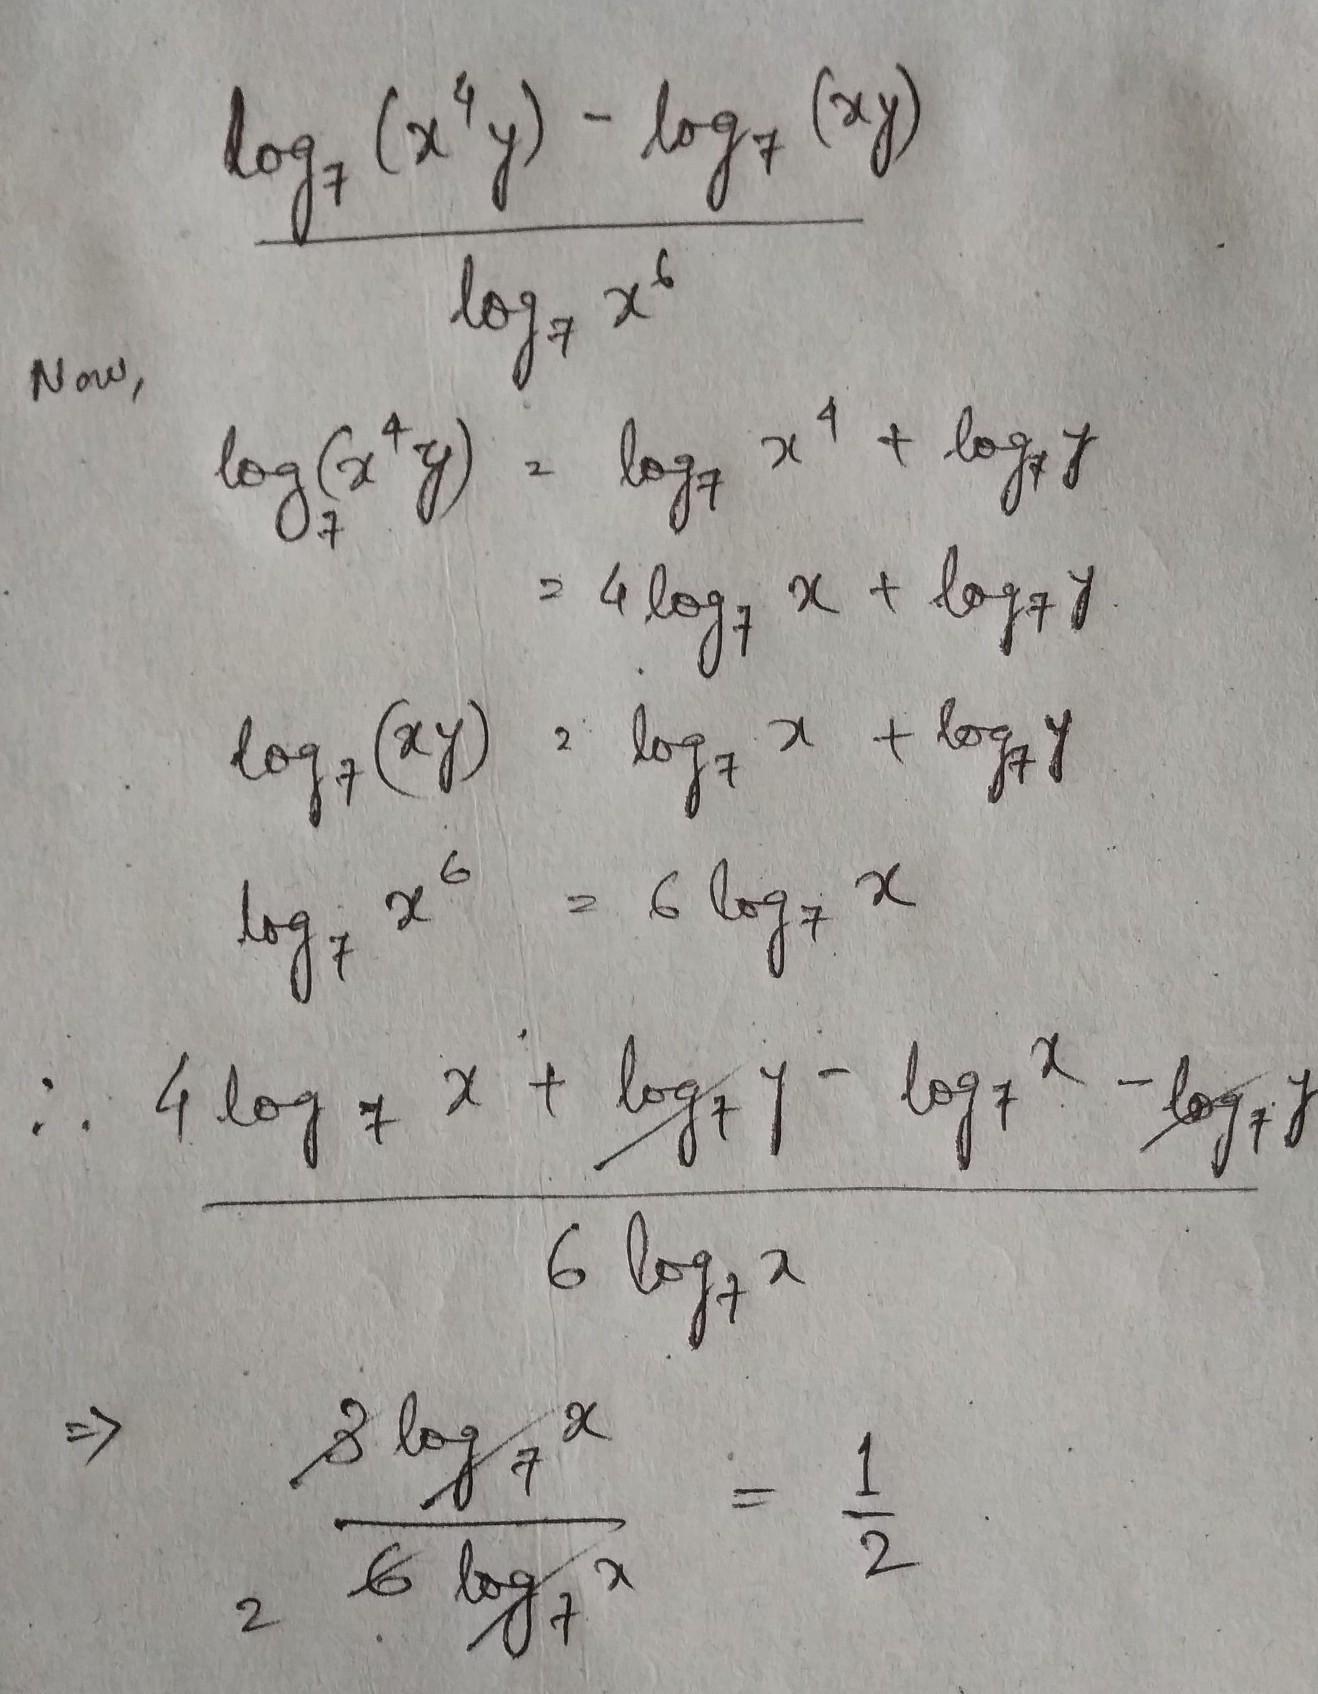 log₇ (x⁴y) - log₇ (xy)
log₇ x⁶
Now,
log₇(x⁴y) = log₇ x⁴ + log₇ y
= 4 log₇ x + log₇ y
log₇ (xy) = log₇ x + log₇ y
log₇ x⁶ = 6 log₇ x
∴ 4 log₇ x + log₇ y - log₇ x - log₇ y
6 log₇ x
⇒ 3 log₇ x = 1
2 6 log₇ x 2